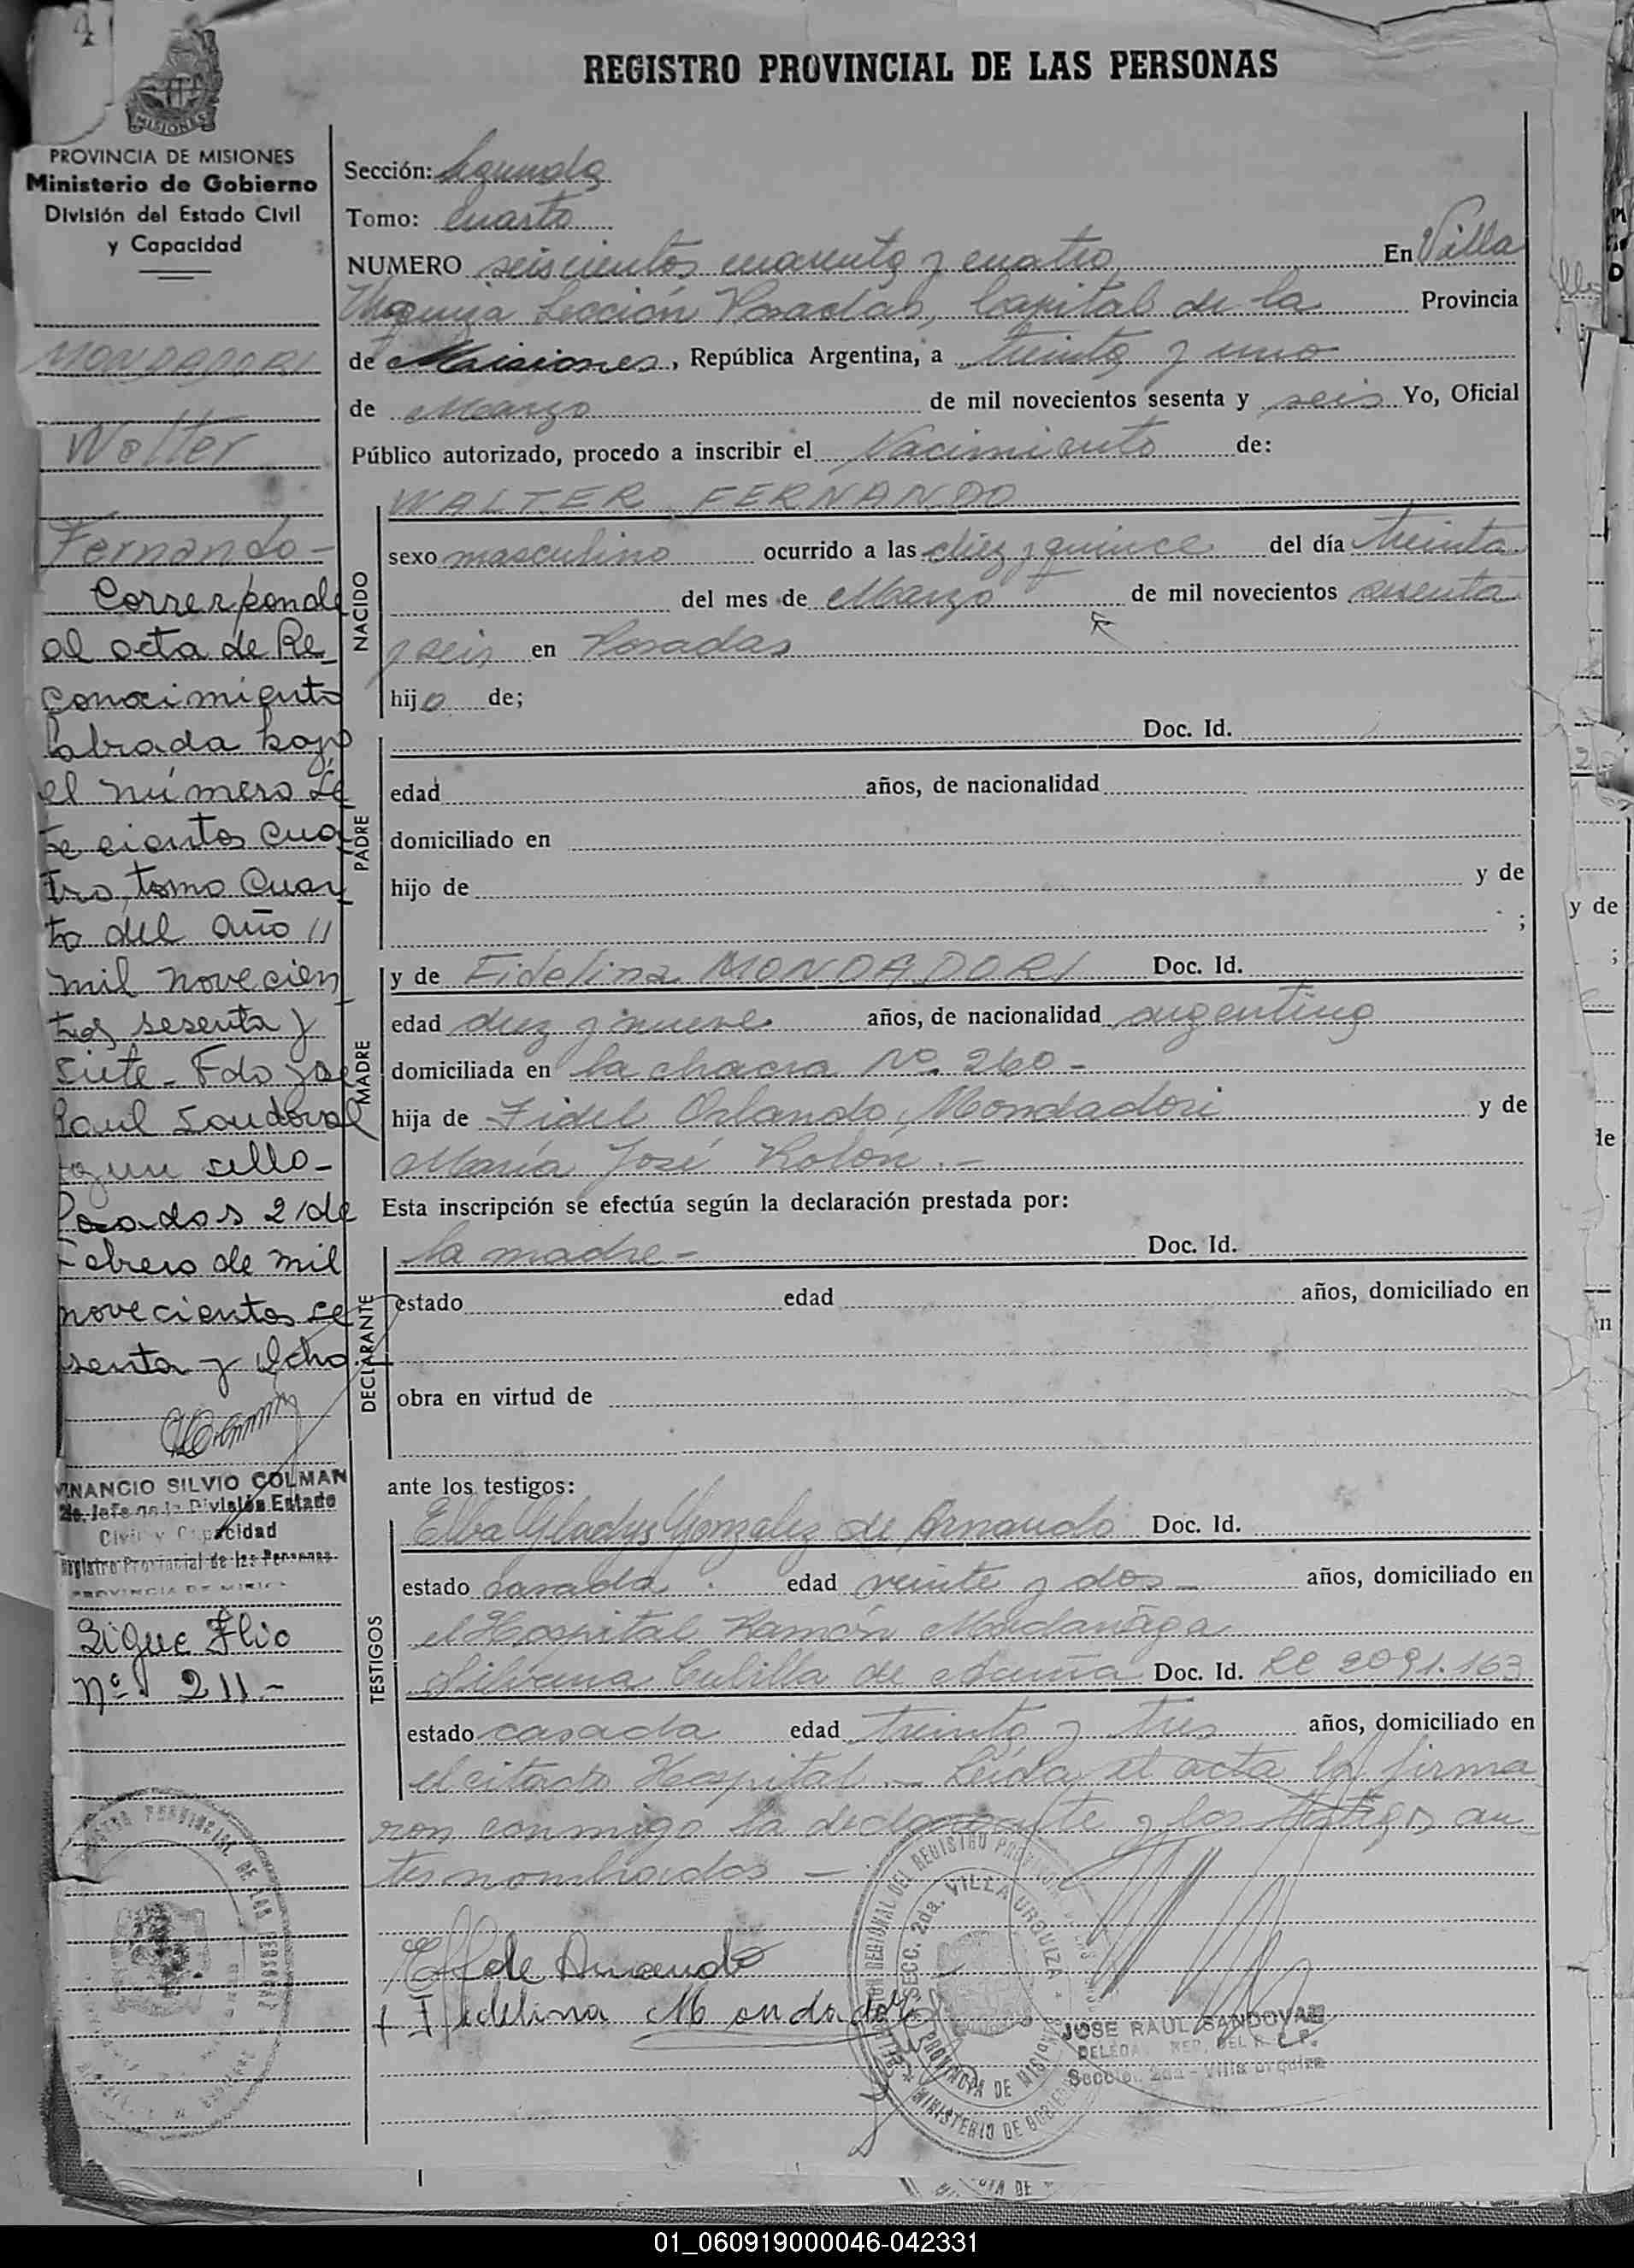 4
REGISTRO PROVINCIAL DE LAS PERSONAS
MISIONES
PROVINCIA DE MISIONES
Ministerio de Gobierno
División del Estado Civil
y Capacidad
MONDADORI
Walter
Fernando -
Corresponde
al acta de Re-
conocimiento
labrada bajo
el número Se
te cientos cua
tro, tomo Cuar
to del año //
mil novecien
tos sesenta y
siete - Fdo José
Raul Sandoval
según sello -
Posadas 2 de
Febrero de mil
novecientos se
senta y Ocho
VENANCIO SILVIO COLMAN
2o. Jefe de la División Estado
Civil y Capacidad
Registro Provincial de las Personas
PROVINCIA DE
Sigue Flio
nº 211 -
Sección: Segunda
Tomo: Cuarto
NUMERO seiscientos cuarenta y cuatro En Villa
Urquiza Sección Posadas, Capital de la Provincia
de Misiones, República Argentina, a treinta y uno
de Marzo de mil novecientos sesenta y seis Yo, Oficial
Público autorizado, procedo a inscribir el Nacimiento de:
WALTER FERNANDO
NACIDO
sexo masculino ocurrido a las diez y quince del día treinta
del mes de Marzo de mil novecientos sesenta
y seis en Posadas
hijo de;
PADRE
Doc. Id.
edad años, de nacionalidad
domiciliado en
hijo de y de
;
MADRE
y de Fidelina MONDADORI Doc. Id.
edad diez y nueve años, de nacionalidad argentina
domiciliada en la chacra Nº 260 -
hija de Fidel Orlando Mondadori y de
María José Rolón . -
Esta inscripción se efectúa según la declaración prestada por:
DECLARANTE
la madre - Doc. Id.
estado edad años, domiciliado en
obra en virtud de
ante los testigos:
TESTIGOS
Elba Gladys Gonzalez de Arnaudo Doc. Id.
estado casada . edad veinte y dos - años, domiciliado en
el Hospital Ramón Madariaga
de Acuña Doc. Id. LC 2091.163
estado casada edad treinta y tres años, domiciliado en
el citado Hospital. - Leída el acta la firma
ron conmigo la declarante y los testigos an
tes nombrados -
de Arnaudo
+ Fidelina Mondadori
DEL REGISTRO PROVINCIAL
SECC. 2da. VILLA URQUIZA
PROVINCIA DE MISIONES
MINISTERIO DE GOBIERNO
JOSE RAUL SANDOVAL
Sección 2da - Villa Urquiza
REGISTRO PROVINCIAL DE LAS PERSONAS
y de
;
de
01_060919000046-042331